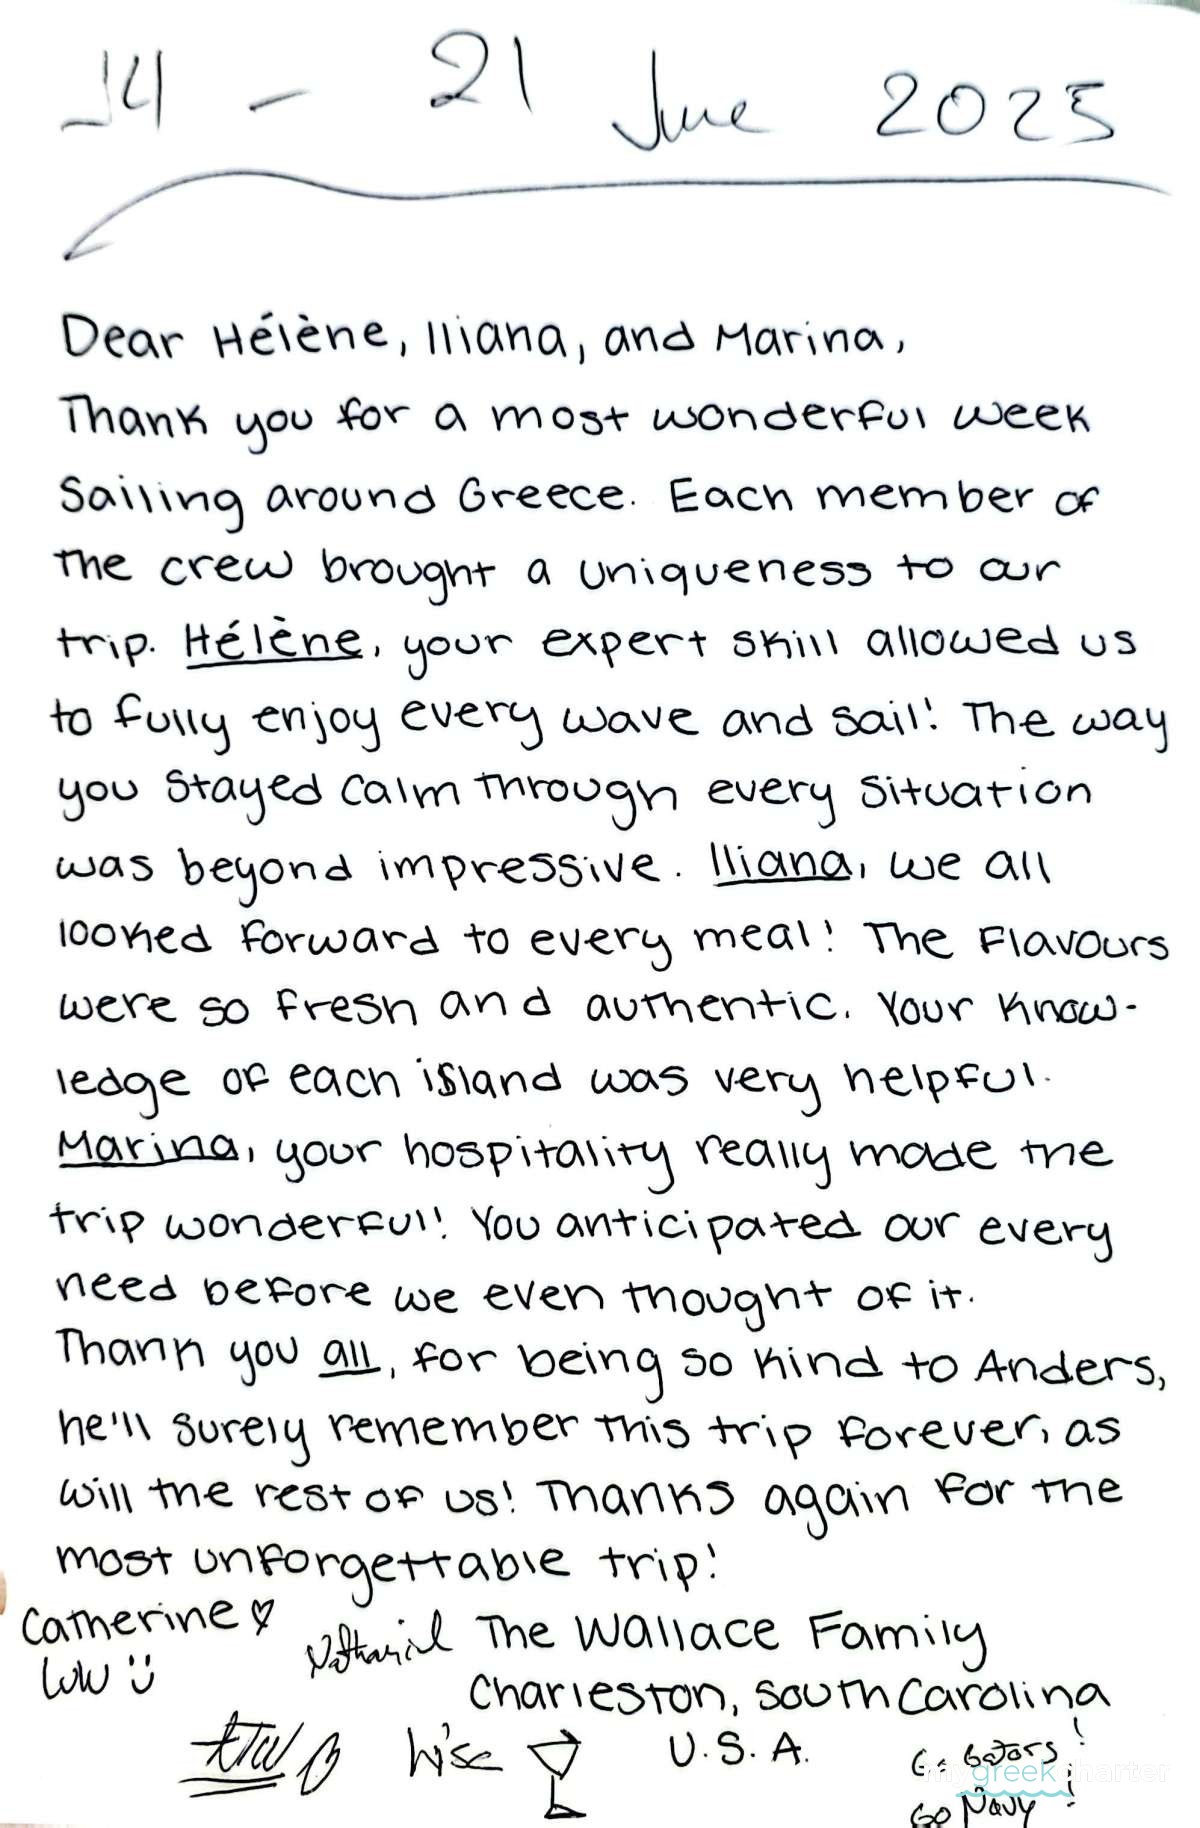 14 - 21 June 2025
Dear Hélène, Iliana, and Marina,
Thank you for a most wonderful week
Sailing around Greece. Each member of
the crew brought a uniqueness to our
trip. Hélène, your expert skill allowed us
to fully enjoy every wave and sail! The way
you stayed calm through every situation
was beyond impressive. Iliana, we all
looked forward to every meal! The Flavours
were so fresh and authentic. Your know-
ledge of each island was very helpful.
Marina, your hospitality really made the
trip wonderful! You anticipated our every
need before we even thought of it.
Thank you all, for being so kind to Anders,
he'll surely remember this trip forever, as
will the rest of us! Thanks again for the
most unforgettable trip!
Catherine ♡
Lulu
Nathaniel
The Wallace Family
Charleston, South Carolina
U.S.A.
Go Gators!
Go Navy!
mygreekcharter